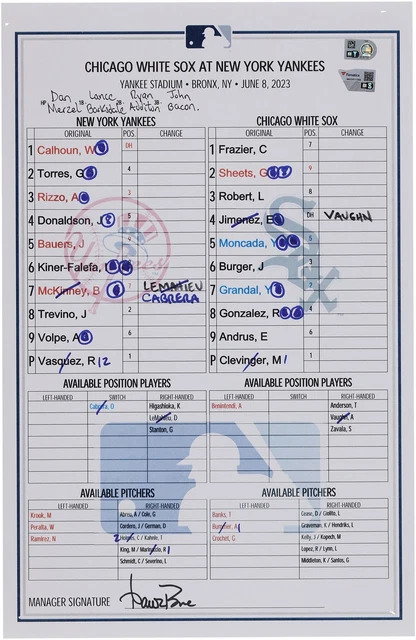 CHICAGO WHITE SOX AT NEW YORK YANKEES
YANKEE STADIUM • BRONX, NY • JUNE 8, 2023
HP Dan 1B Lance 2B Ryan 3B John
Merzel Barksdale Additon Bacon.
NEW YORK YANKEES CHICAGO WHITE SOX
ORIGINAL POS. CHANGE ORIGINAL POS. CHANGE
1 Calhoun, W DH 1 Frazier, C 7
2 Torres, G 4 2 Sheets, G 9
3 Rizzo, A 3 3 Robert, L 8
4 Donaldson, J 5 4 Jimenez, E DH VAUGHN
5 Bauers, J 9 5 Moncada, Y 5
6 Kiner-Falefa, I 6 Burger, J 3
7 McKinney, B 7 LEMAHIEU CABRERA 7 Grandal, Y 2
8 Trevino, J 2 8 Gonzalez, R 4
9 Volpe, A 6 9 Andrus, E 6
P Vasquez, R 12 1 P Clevinger, M 1
AVAILABLE POSITION PLAYERS AVAILABLE POSITION PLAYERS
LEFT-HANDED SWITCH RIGHT-HANDED LEFT-HANDED SWITCH RIGHT-HANDED
Cabrera, O Higashioka, K Benintendi, A Anderson, T
LeMahieu, D Vaughn, A
Stanton, G Zavala, S
AVAILABLE PITCHERS AVAILABLE PITCHERS
LEFT-HANDED RIGHT-HANDED LEFT-HANDED RIGHT-HANDED
Krook, M Abreu, A / Cole, G Banks, T Cease, D / Giolito, L
Peralta, W Cordero, J / German, D Bummer, A 1 Graveman, K / Hendriks, L
Ramirez, N 2 Holmes, C / Kahnle, T Crochet, G Kelly, J / Kopech, M
King, M / Marinaccio, R 1 Lopez, R / Lynn, L
Schmidt, C / Severino, L Middleton, K / Santos, G
MANAGER SIGNATURE